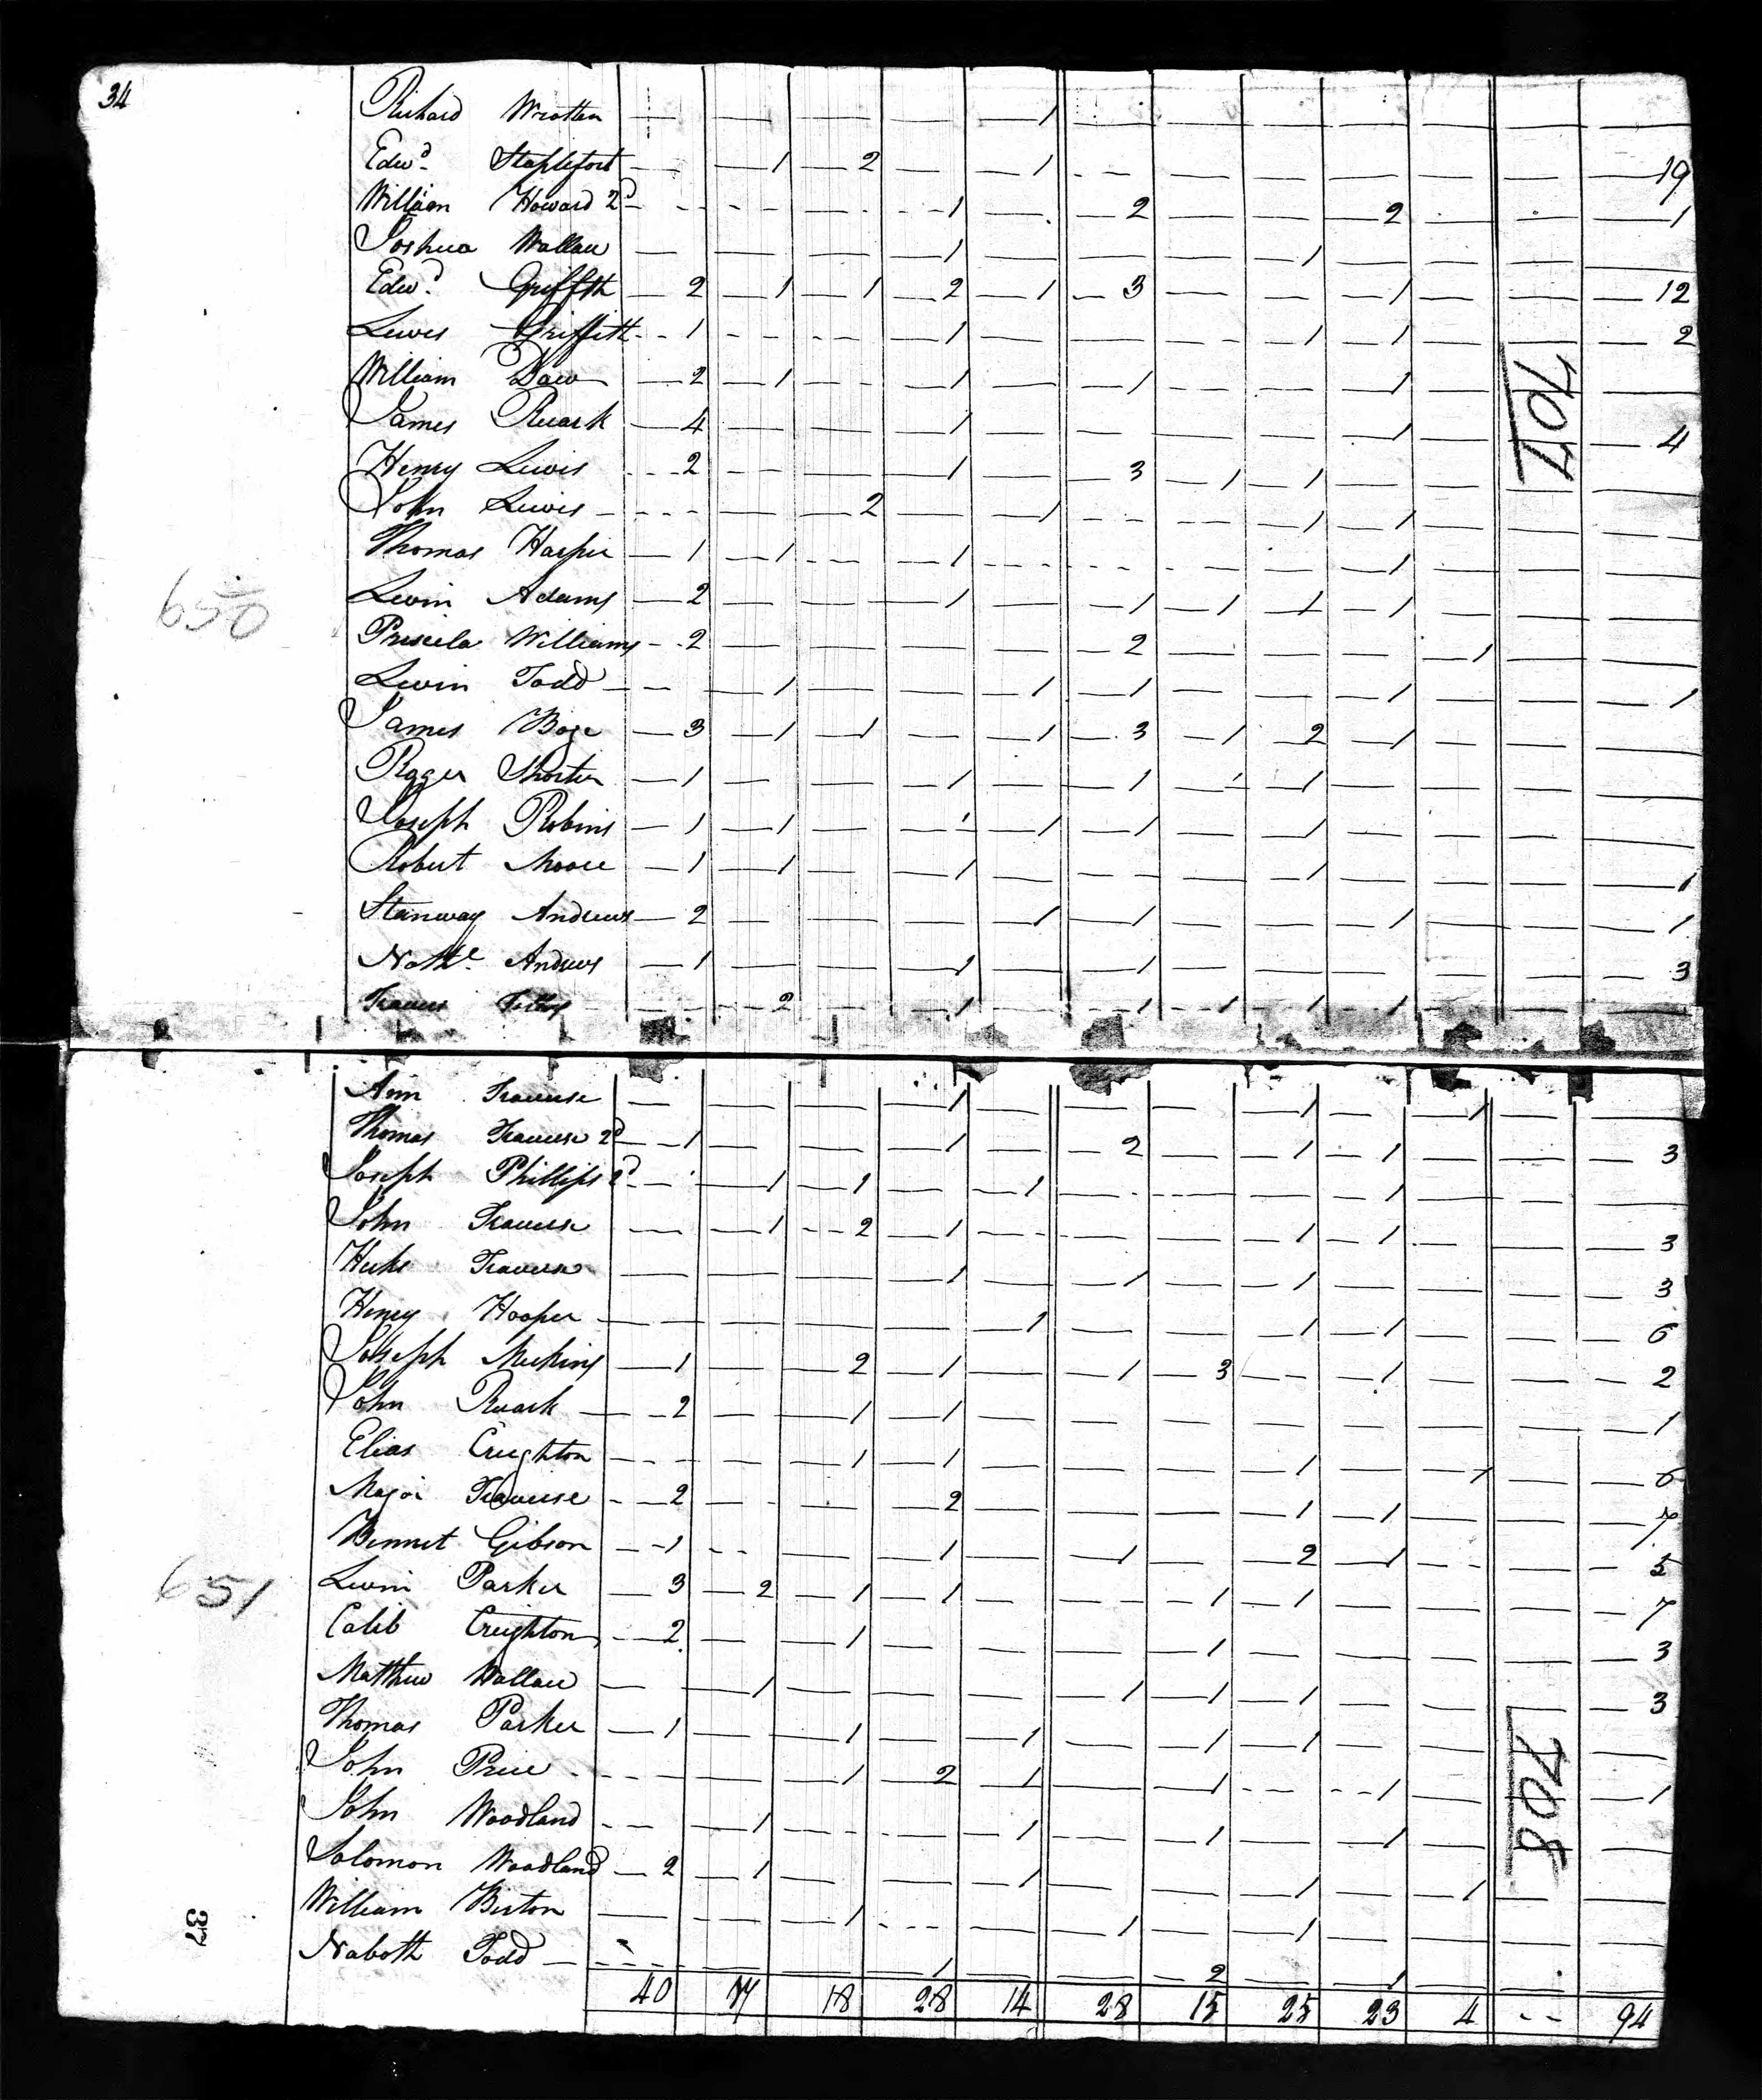 34
Richard Wrotten — — — — 1 — — — — — — —
Edwd. Staplefort — 1 2 — 1 - - — — — — — 19
William Howard 2d - - - - 1 — 2 — — 2 - - 1
Joshua Wallace — — — 1 — — — 1 — — — —
Edwd. Griffith 2 1 1 2 1 3 — — 1 — — 12
Lewis Griffith 1 - - 1 — — — 1 1 — — 2
William Daw 2 1 - 1 — 1 - - 1 — — —
James Ruark 4 — — 1 — — — — 1 — — 4
Henry Lewis 2 — — 1 — 3 1 1 — — — —
John Lewis - - 2 — 1 - - 1 1 — — —
Thomas Harper 1 1 — 1 - - - - 1 — — —
Levin Adams 2 — — 1 — 1 1 1 1 — — —
Priscila Williams 2 — — — — 2 — — — 1 — —
Levin Todd — 1 — — 1 1 — — 1 — — 1
James Boze 3 1 1 — 1 3 1 2 1 — — —
Roger Shorter 1 — — 1 — 1 1 1 — — — —
Joseph Robins 1 1 — 1 1 1 — 1 — — — —
Robert Moore 1 1 — 1 — - - 1 — — — 1
Stanway Andrews 2 — — — 1 1 — — 1 — — 1
Nathl. Andrews 1 — — 1 — 1 — — — — — 3
Travers - 2 — 1 — 1 1 1 1 — — —
650
707
Ann Traverse — — — 1 — — — 1 — 1 — —
Thomas Traverse 2d 1 — — 1 — 2 — 1 1 — — 3
Joseph Phillips 2d - 1 1 — 1 - - - 1 — — —
John Traverse — 1 2 1 — - — 1 1 - — 3
Hicks Traverse — — — 1 — 1 — 1 — — — 3
Henry Hooper — — — — 1 — — 1 1 — — 6
Joseph Mekins 1 — 2 1 — 1 3 - 1 — — 2
John Ruark 2 — 1 1 — — — — — — — 1
Elias Creighton - - 1 1 — — — 1 — 1 — 6
Major Traverse 2 — — 2 — — — 1 1 — — 7
Bennet Gibson 1 - — 1 — 1 — 2 1 - — 5
Levin Parker 3 2 1 1 — - 1 1 — — — 7
Caleb Creighton 2 — 1 — — — 1 — — — — 3
Matthew Wallace — 1 — — — 1 1 1 — — — 3
Thomas Parker 1 — 1 — 1 — 1 1 — — — —
John Price - — 1 2 1 — 1 - 1 — — 1
John Woodland - 1 - - 1 — 1 — 1 — — —
Solomon Woodland 2 1 — — 1 — — 1 — 1 — —
William Biston — — 1 - — 1 — 1 — — — —
Naboth Todd - — — 1 — — 2 — 1 — — —
40 17 18 28 14 28 15 25 23 4 - - 94
651
708
37